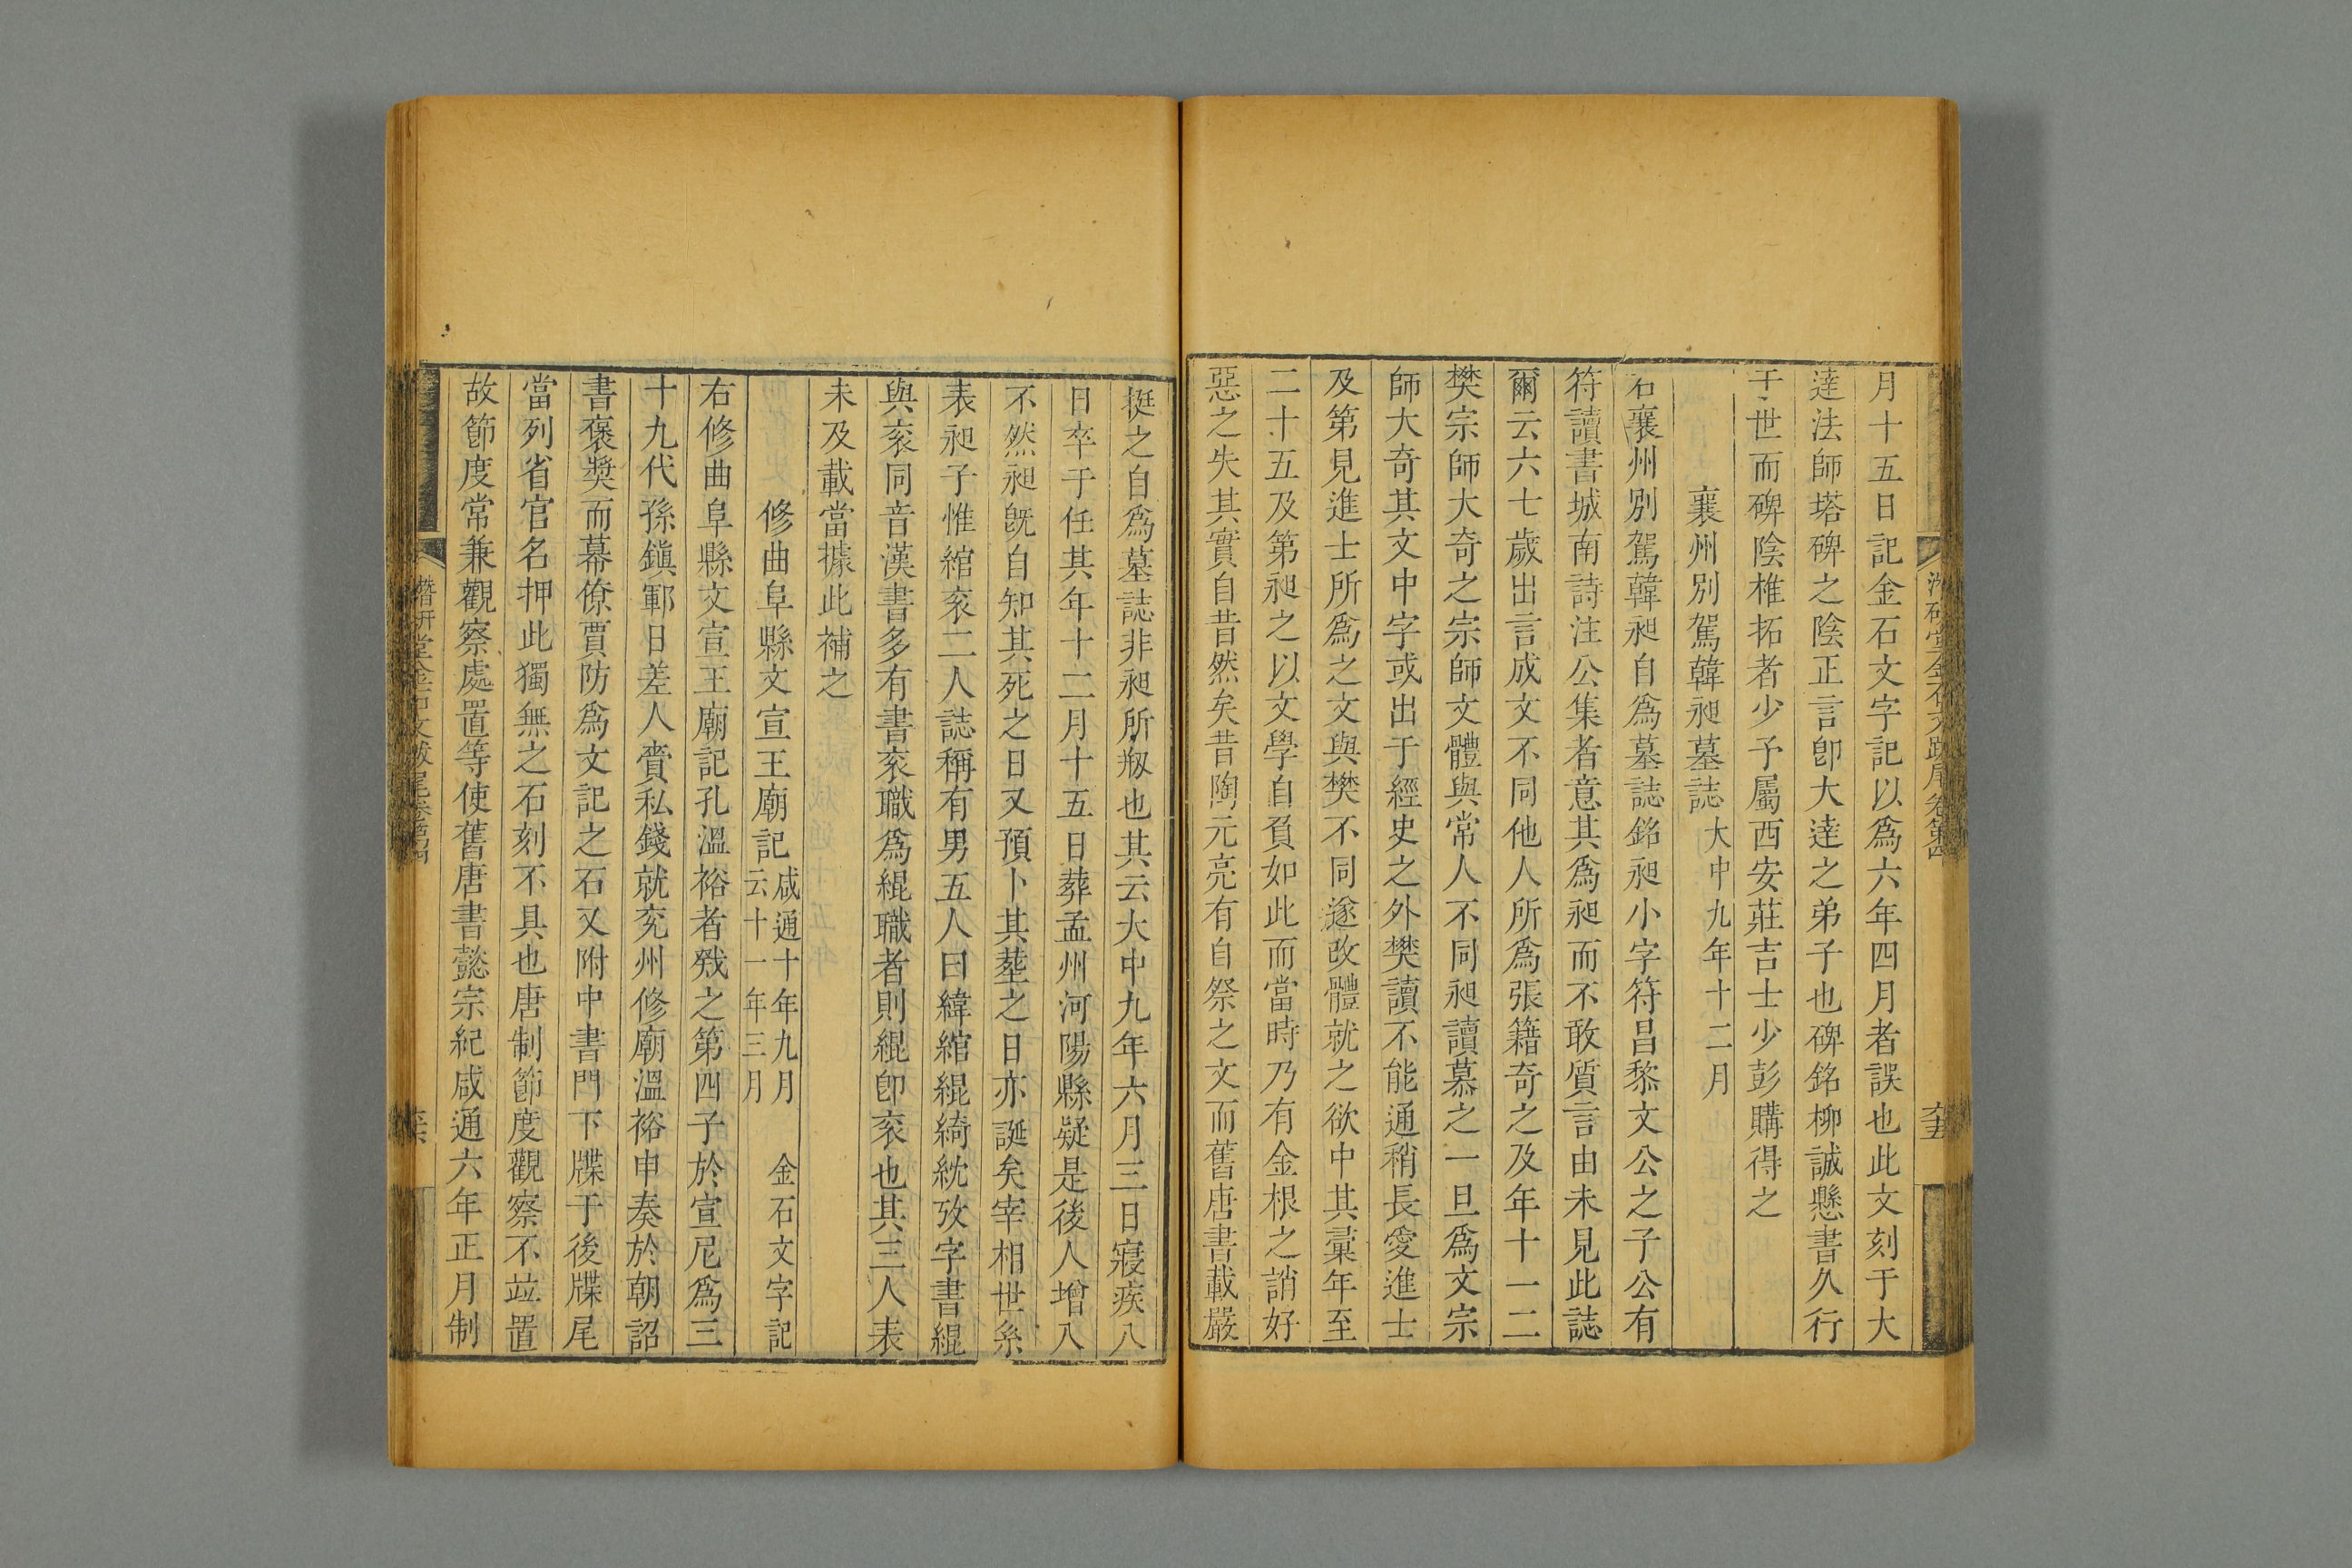 月十五日記金石文字記以爲六年四月者誤也此文刻于大
達法師塔碑之陰正言卽大達之弟子也碑銘柳誠懸書久行
于世而碑陰椎拓者少予屬西安莊吉士少彭購得之
襄州別駕韓昶墓誌大中九年十二月
右襄州別駕韓昶自爲墓誌銘昶小字符昌黎文公之子公有
符讀書城南詩注公集者意其爲昶而不敢質言由未見此誌
爾云六七歲出言成文不同他人所爲張籍奇之及年十一二
樊宗師大奇之宗師文體與常人不同昶讀慕之一旦爲文宗
師大奇其文中字或出于經史之外樊讀不能通稍長愛進士
及第見進士所爲之文與樊不同遂改體就之欲中其彙年至
二十五及第昶之以文學自負如此而當時乃有金根之誚好
惡之失其實自昔然矣昔陶元亮有自祭之文而舊唐書載嚴
挺之自爲墓誌非昶所剏也其云大中九年六月三日寢疾八
日卒于任其年十二月十五日葬孟州河陽縣疑是後人增入
不然昶旣自知其死之日又預卜其葬之日亦誕矣宰相世系
表昶子惟綰衮二人誌稱有男五人曰緯綰緄綺紞攷字書緄
與衮同音漢書多有書衮職爲緄職者則緄卽衮也其三人表
未及載當據此補之
修曲阜縣文宣王廟記咸通十年九月　金石文字記
云十一年三月
右修曲阜縣文宣王廟記孔溫裕者戣之第四子於宣尼爲三
十九代孫鎭鄆日差人賫私錢就兖州修廟溫裕申奏於朝詔
書褒奬而幕僚賈防爲文記之石又附中書門下牒于後牒尾
當列省官名押此獨無之石刻不具也唐制節度觀察不竝置
故節度常兼觀察處置等使舊唐書懿宗紀咸通六年正月制
潛研堂金石文跋尾卷第四